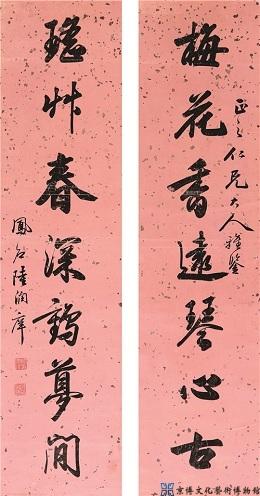 梅花香遠琴心古
正之仁兄大人雅鑒
瑤艸春深鶴夢閒
鳳石陸潤庠
京博文化藝術博物館